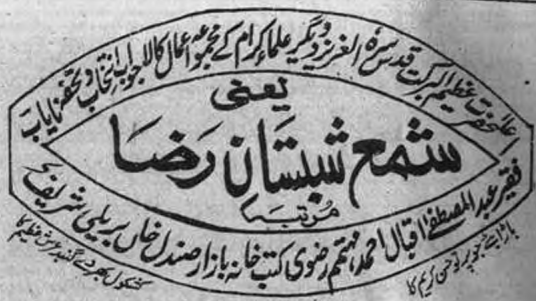 اعلیٰحضرت عظیم البرکت قدس سرہٗ العزیز و دیگر علمائے کرام کے مجموعہ اعمال کا لاجواب انتخاب و تحفہ نایاب
یعنی
شمع شبستانِ رَضَا
مرتبہ
فقیر عبدالمصطفےٰ اقبال احمد، مہتمم رضوی کتب خانہ بازار صندل خاں بریلی شریف
کا
کشکول بھر دے گنبد عرش عظیم کا